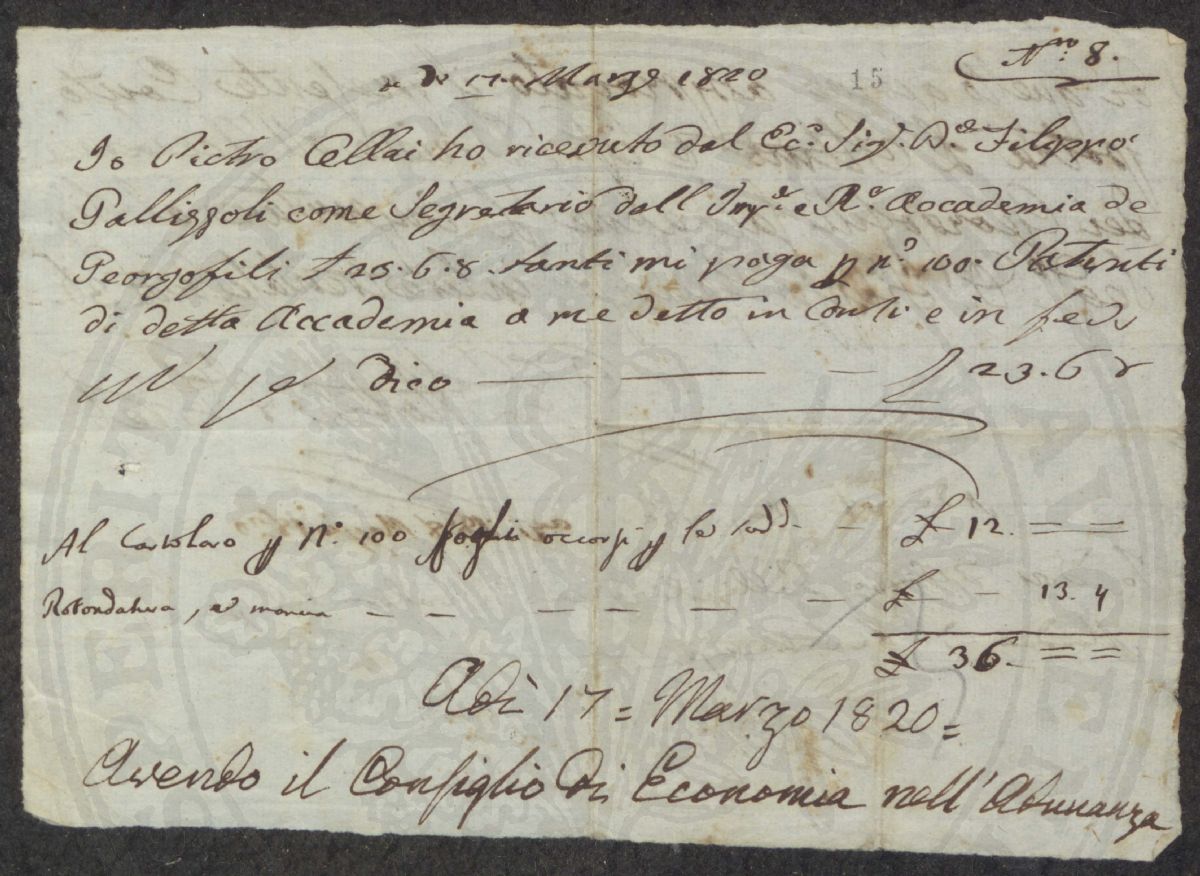 Nro 8.
A dì 17. Marzo 1820
15
Io Pietro Cellai ho ricevuto dal Ec.o Sig.r D.e Filippo
Gallizzoli come Segretario dell Imp.e e R.e Accademia de
Georgofili £ 23.6.8. tanti mi paga p n.o 100. Patenti
di detta Accademia a me detto in Conti e in fede
dico — £ 23.6 8
Al Cartolaro p N.o 100 fogli occorsi p le sudd. — £ 12. = =
Rotondatura, e mancia — — £ — 13. 4
£ 36. = =
Adì 17 = Marzo 1820 =
Avendo il Consiglio di Economia nell'Adunanza